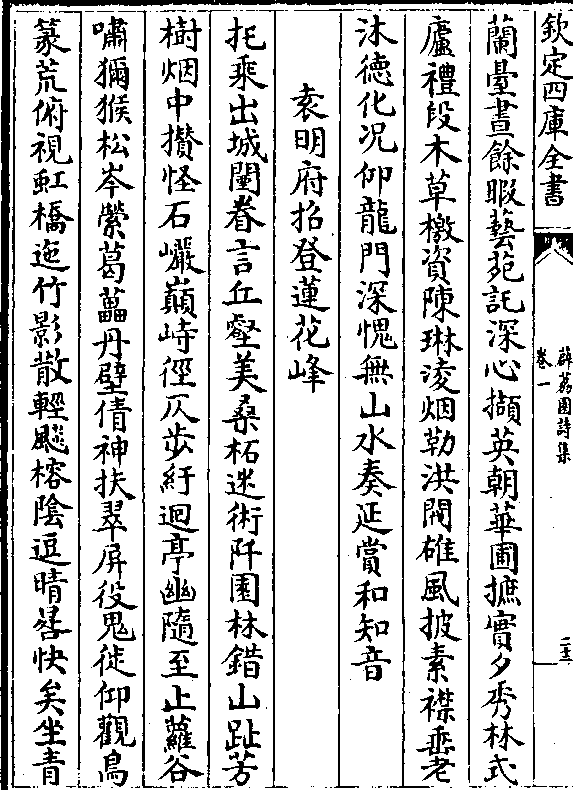 欽定四庫全書
薜荔園詩集
卷一
蘭臺晝餘暇藝苑託深心擷英朝華圃摭實夕秀林式
廬禮段木草檄資陳琳淩烟勒洪閥雄風披素襟垂老
沐德化况仰龍門深愧無山水奏延賞和知音
袁明府招登蓮花峰
托乘出城闉眷言丘壑美桑柘迷術阡園林錯山趾芳
樹烟中攅怪石巗巔峙徑仄步紆迴亭幽隨至止蘿谷
嘯獼猴松岑縈葛藟丹壁倩神扶翠屏役鬼徙仰觀鳥
篆荒俯視虹橋迤竹影散輕颸榕陰逗晴晷快矣坐青